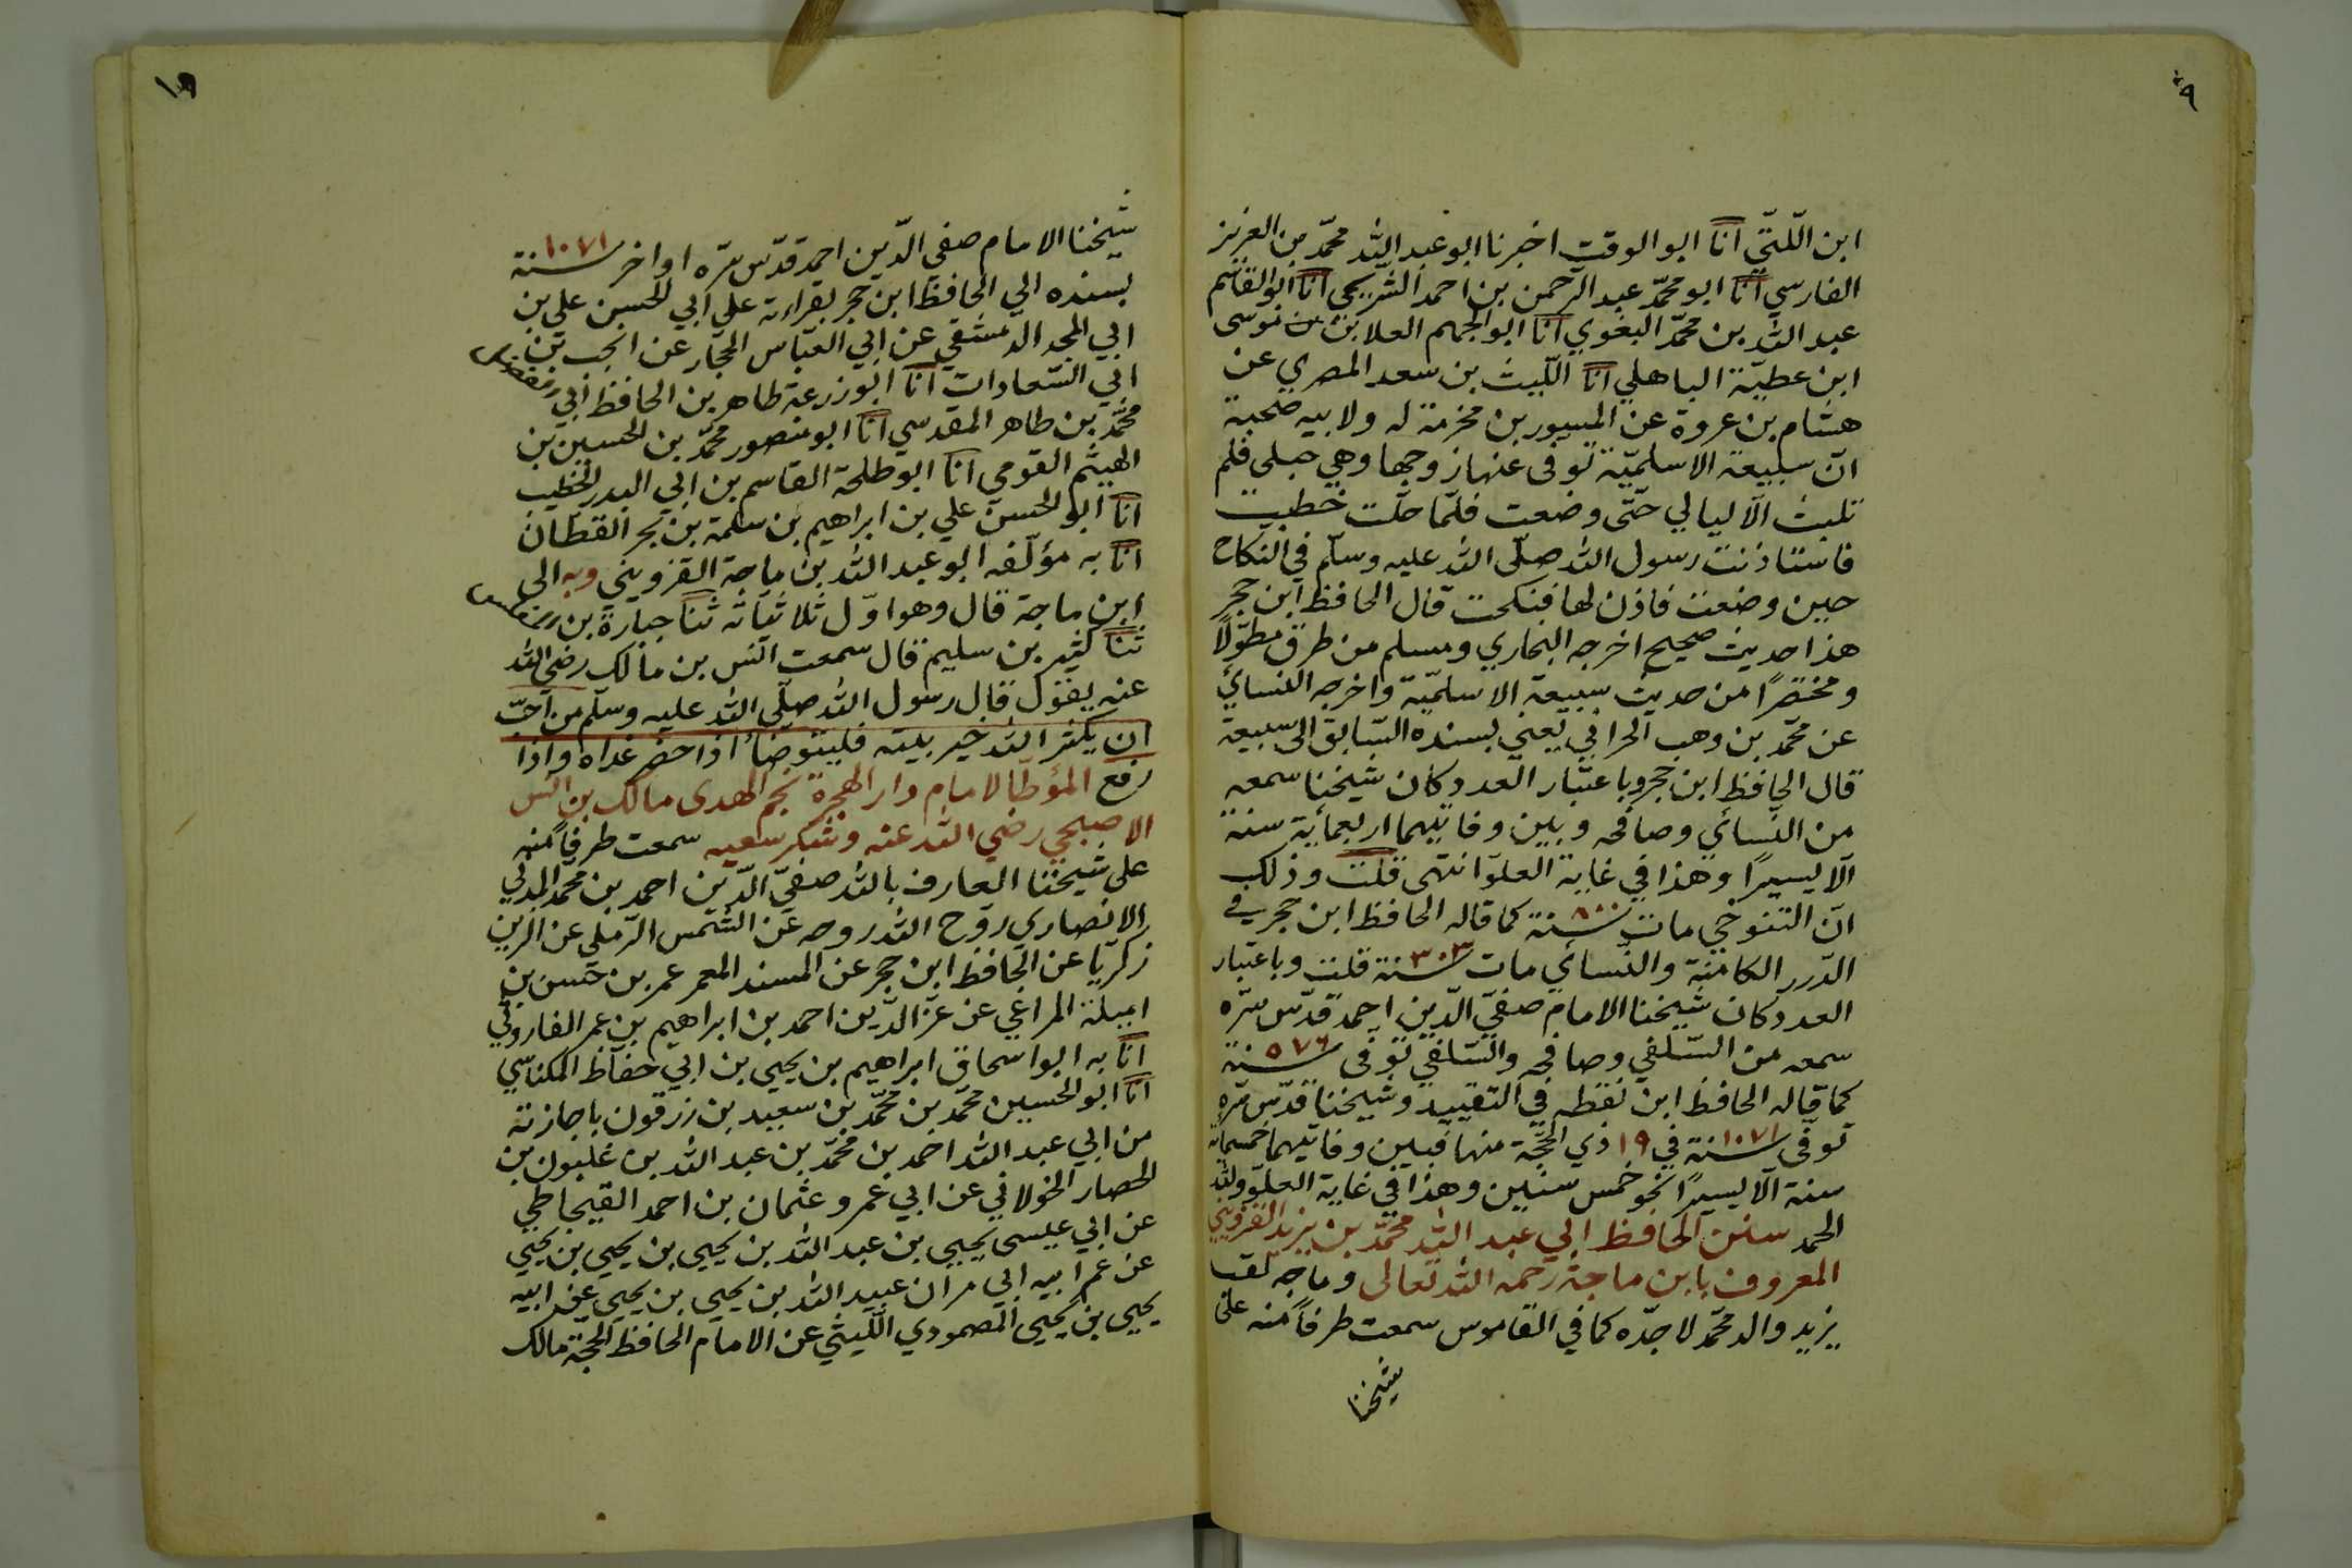 ٩
ابن اللّتّي انا ابو الوقت اخبرنا ابو عبد الله محمّد بن العزيز
الفارسي انا ابو محمّد عبد الرحمن بن احمد الشريحي انا ابو القاسم
عبد الله بن محمّد البغوي انا ابو الجهم العلا بن موسى
ابن عطيّة الباهلي انا اللّيث بن سعد المصري عن
هشام بن عروة عن المسور بن مخرمة له ولابيه صحبة
انّ سبيعة الاسلميّة توفى عنها زوجها وهي حبلى فلم
تلبث الّا ليالي حتّى وضعت فلمّا حلّت خطبت
فاستاذنت رسول الله صلّى الله عليه وسلّم في النكاح
حين وضعت فاذن لها فنكحت قال الحافظ ابن حجر
هذا حديث صحيح اخرجه البخاري ومسلم من طرق مطوّلًا
ومختصرًا من حديث سبيعة الاسلميّة واخرجه النسائي
عن محمّد بن وهب الحراني يعني بسنده السّابق الى سبيعة
قال الحافظ ابن حجر وباعتبار العدد كان شيخنا سمعه
من النّسائي وصافحه وبين وفاتيهما اربعمائة سنة
الّا يسيرًا وهذا في غاية العلوّ انتهى قلت وذلك
انّ التنوخي مات سنة ٨٠٠ كما قاله الحافظ ابن حجر في
الدّرر الكامنة والنّسائي مات سنة ٣٠٣ قلت وباعتبار
العدد كان شيخنا الامام صفيّ الدّين احمد قدّس سرّه
سمعه من السّلفي وصافحه والسّلفي توفى سنة ٥٧٦
كما قاله الحافظ ابن نقطه في التقييد وشيخنا قدّس سرّه
توفى سنة ١٠٧١ في ١٩ ذي الحجّة منها فبين وفاتيهما خمسمائة
سنة الّا يسيرًا نحو خمس سنين وهذا في غاية العلوّ ولله
الحمد سنن الحافظ ابي عبد الله محمّد بن يزيد القزويني
المعروف بابن ماجة رحمه الله تعالى وماجه لقب
يزيد والد محمّد لا جدّه كما في القاموس سمعت طرفًا منه على
شيخنا
١٠
شيخنا الامام صفي الدّين احمد قدّس سرّه اواخر سنة ١٠٧١
بسنده الي الحافظ ابن حجر بقراءته علي ابي الحسين علي بن
ابي المجد الدمشقي عن ابي العبّاس الحجّار عن انجب بن
ابي السّعادات انا ابو زرعة طاهر بن الحافظ ابي
محمّد بن طاهر المقدسي انا ابو منصور محمّد بن الحسين بن
الهيثم القومي انا ابو طلحة القاسم بن ابي البدر الخطيب
انا ابو الحسن علي بن ابراهيم بن سلمة بن بحر القطان
انا به مؤلّفه ابو عبد الله بن ماجة القزويني وبه الى
ابن ماجة قال وهو اوّل ثلاثيّاته ثنا جبارة بن
ثنا كثير بن سليم قال سمعت انس بن مالك رضي الله
عنه يقول قال رسول الله صلّى الله عليه وسلّم من احبّ
ان يكثر الله خير بيته فليتوضأ اذا حضر غداه واذا
رفع المؤطّا لامام دار الهجرة نجم الهدى مالك بن انس
الاصبحي رضي الله عنه وشكر سعيه سمعت طرفًا منه
على شيخنا العارف بالله صفيّ الدّين احمد بن محمّد المدني
الانصاري روّح الله روحه عن الشّمس الرّملي عن الزين
زكريّا عن الحافظ ابن حجر عن المسند المعمر عمر بن حسن بن
اميلة المراغي عن عزّ الدّين احمد بن ابراهيم بن عمر الفاروثي
انا به ابو اسحاق ابراهيم بن يحيى بن ابي حفاظ المكناسي
انا ابو الحسين محمّد بن محمّد بن سعيد بن زرقون باجازته
من ابي عبد الله احمد بن محمّد بن عبد الله بن غلبون بن
الحصار الخولاني عن ابي عمرو عثمان بن احمد القيجاطي
عن ابي عيسى يحيى بن عبد الله بن يحيى بن يحيى بن يحيى
عن عمّ ابيه ابي مران عبيد الله بن يحيى بن يحيى عن ابيه
يحيى بن يحيى المصمودي اللّيثي عن الامام الحافظ الحجّة مالك